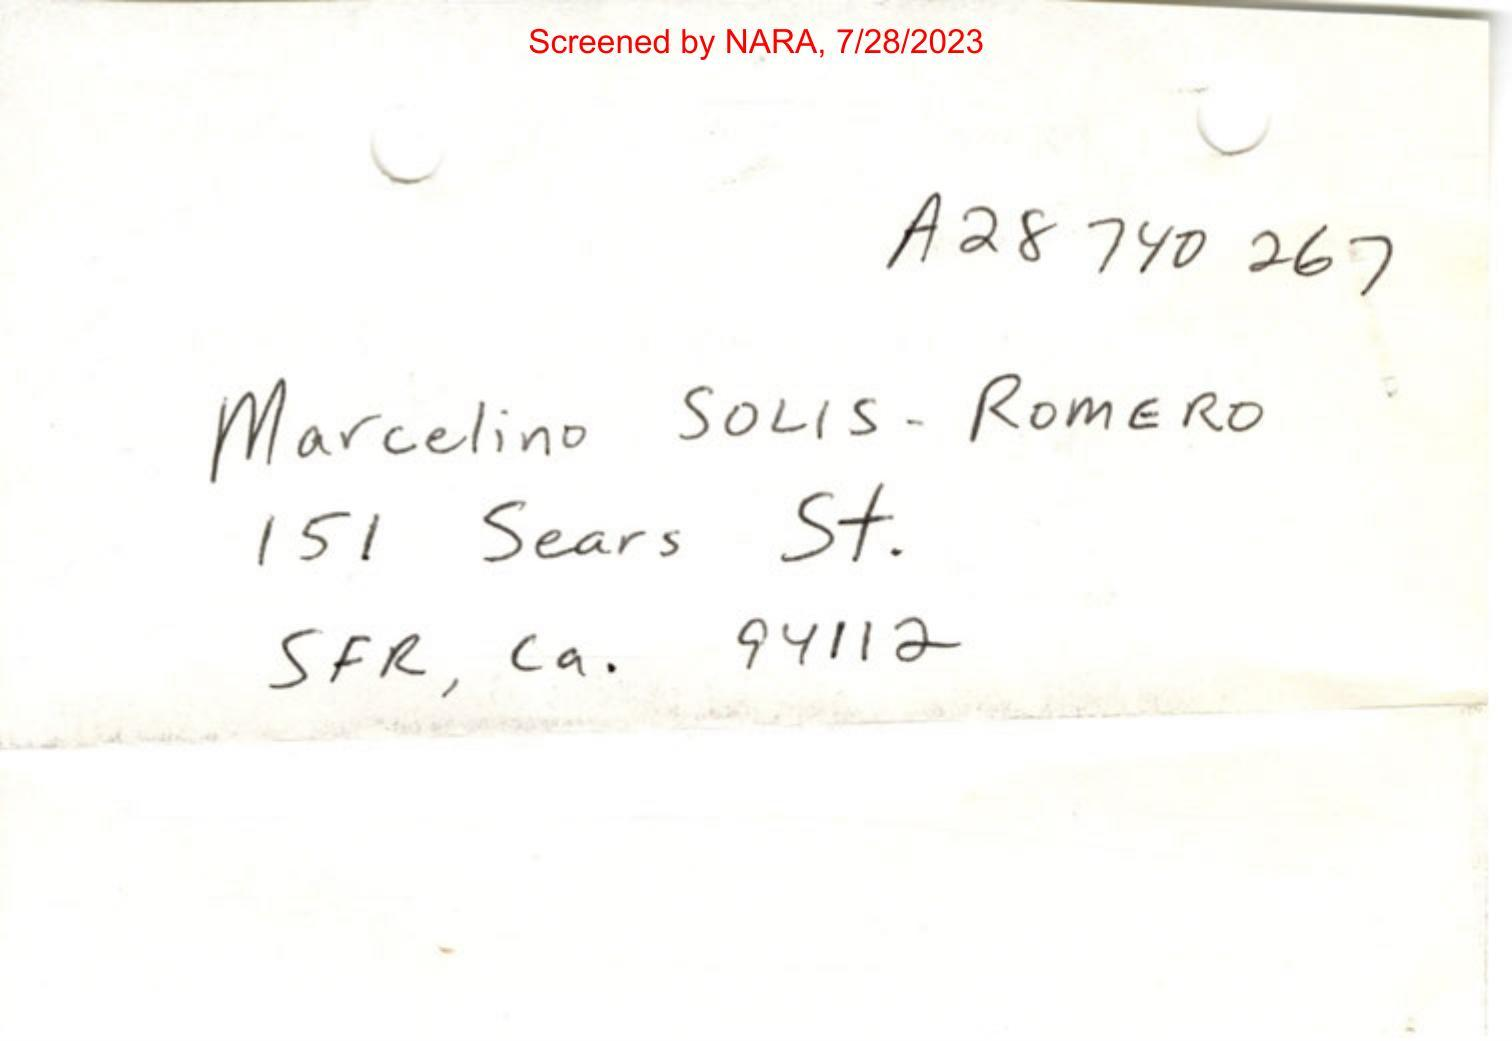 Screened by NARA, 7/28/2023
A28 740 267
Marcelino SOLIS - ROMERO
151 Sears St.
SFR, Ca. 94112